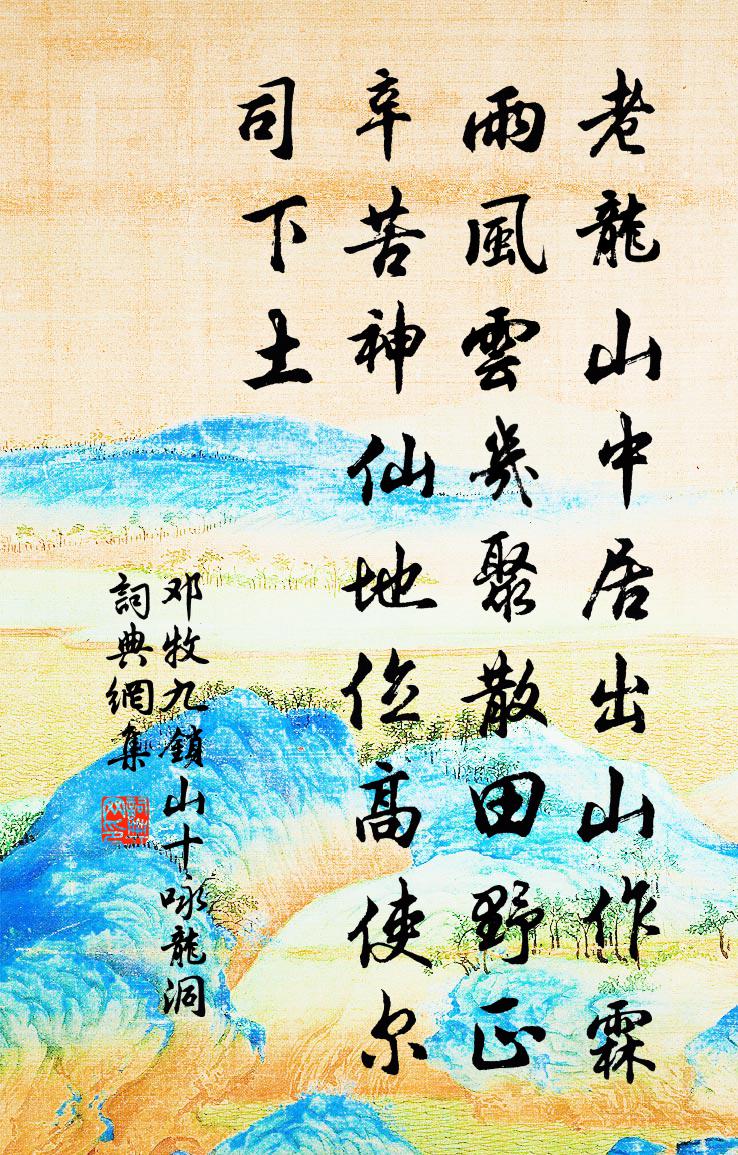 老龍山中居出山作霖
雨風雲幾聚散田野正
辛苦神仙地位高使尔
司下土
邓牧九鎖山十咏龍洞
詞典網集